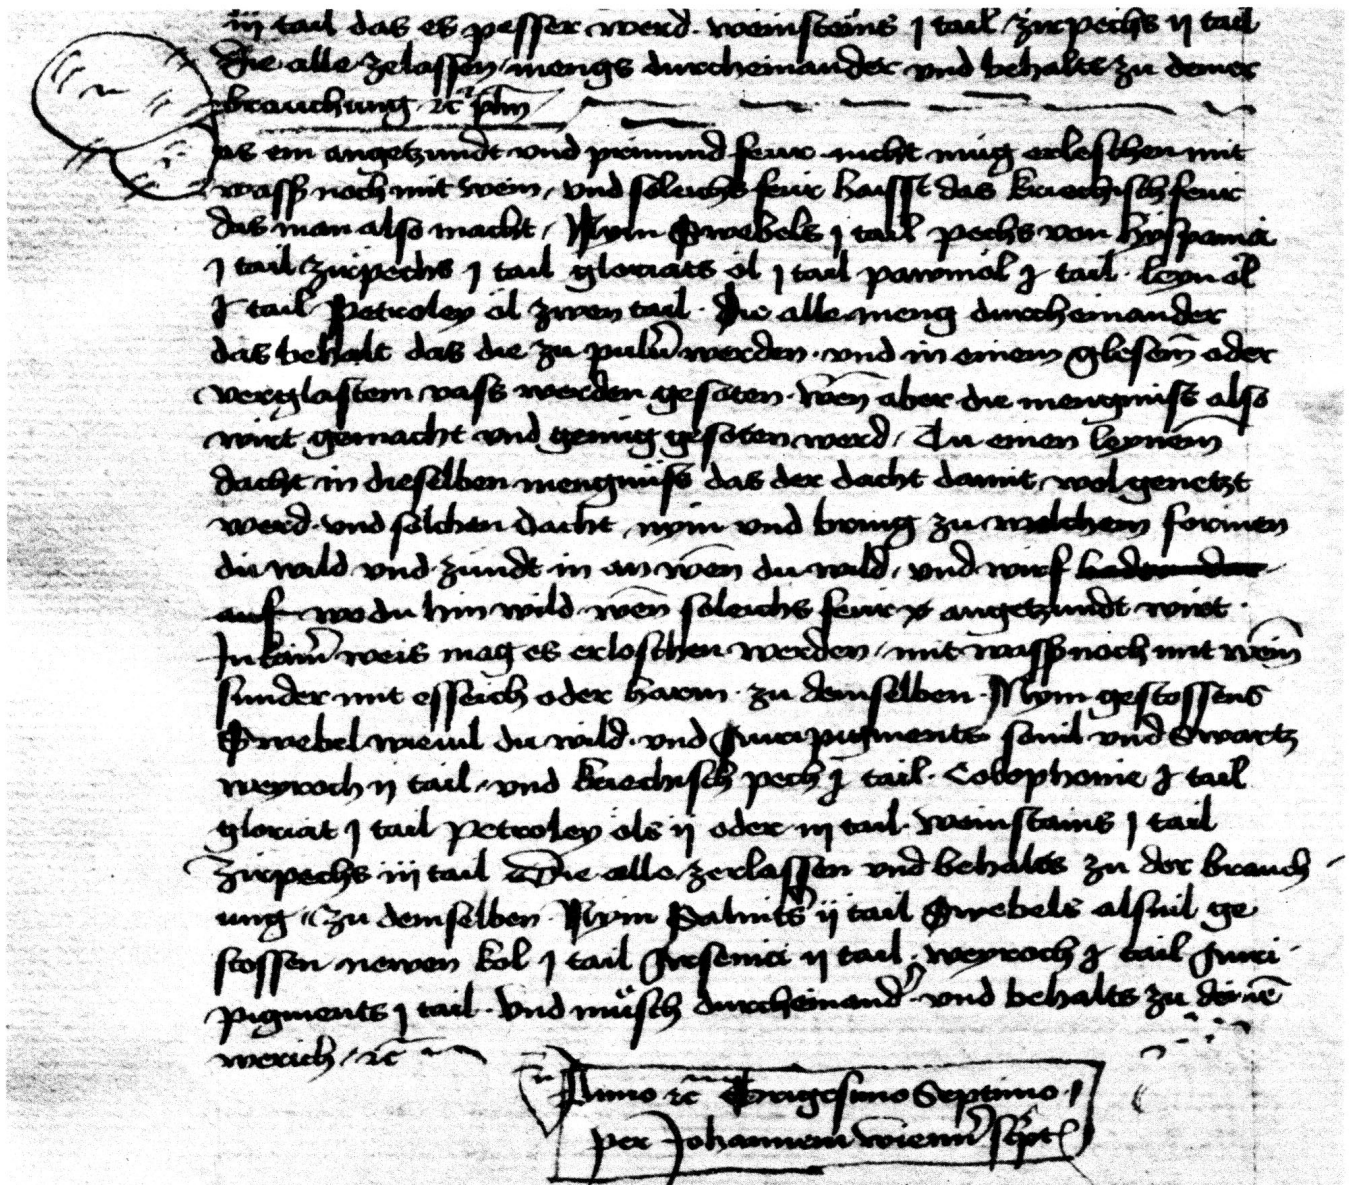 iij tail das es pesser werd. weinsteins j tail zirpechs ij tail
die alle zelassen mengs durcheinander vnd behalts zu deiner
brauchung ꝛc̄
as ein angetzundt vnd prinnund feur nicht müg erleschen mit
wasser noch mit wein, vnd soleichs feur haisst das kriechisch feur
das man also macht, Nym Swebels j tail pechs von hyspania
j tail zirpechs j tail gloriats öl j tail pawmöl j tail. leynöl
j tail Petroley öl zwen tail. Die alle meng durcheinander
das behalt das die zu pulu̾ werden. vnd in einem glesem̄ oder
verglastem vass werden gesoten. wen̄ aber die mengniss also
wirt gemacht vnd genug gesoten werd, Tu einen leynem̄
dacht in dieselben mengnüss das der dacht damit wol genetzt
werd. vnd solchen dacht nym vnd bring zu welchem formen
du wild vnd zündt in an wen̄ du wild, vnd wirf
auf wo du hin wild wen̄ soleichs feur angetzundt wirt.
In kain̾ weis mag es erloschen werden, mit wass̾ noch mit wein̄
sunder mit esseich oder harm. zu demselben. Nym gestossens
Swebel wieuil du wild. vnd Auripigments souil vnd Swartz
weyroch ij tail, vnd kriechisch pech j tail. Colophonie j tail
gloriat j tail Petroley öls ij oder iij tail. weinstains j tail
Zirpechs iij tail Die alle zerlassen vnd behalts zu der brauch
ung, Zu demselben. Nym Salnit̾s ij tail Swebels alsuil ge
stossen newen kol j tail Arsenici ij tail. weyroch j tail Auri
pigments j tail. vnd müsch durcheinand̾. vnd behalts zu
werich, ꝛc̄
Anno ꝛc̄ Trigesimo Septimo.
per Johannem wienn̾ script